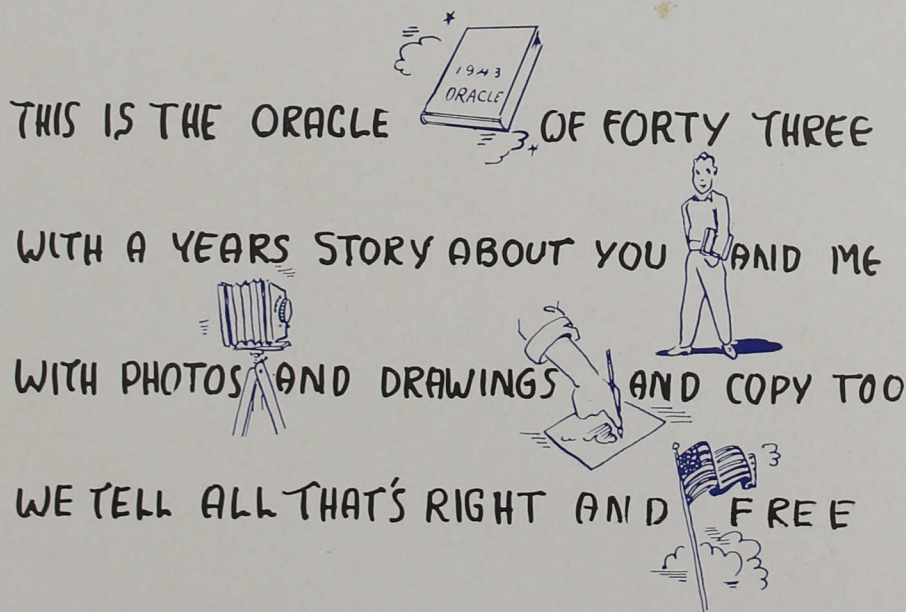 1943
ORACLE
THIS IS THE ORACLE OF FORTY THREE
WITH A YEARS STORY ABOUT YOU AND ME
WITH PHOTOS AND DRAWINGS AND COPY TOO
WE TELL ALL THAT'S RIGHT AND FREE